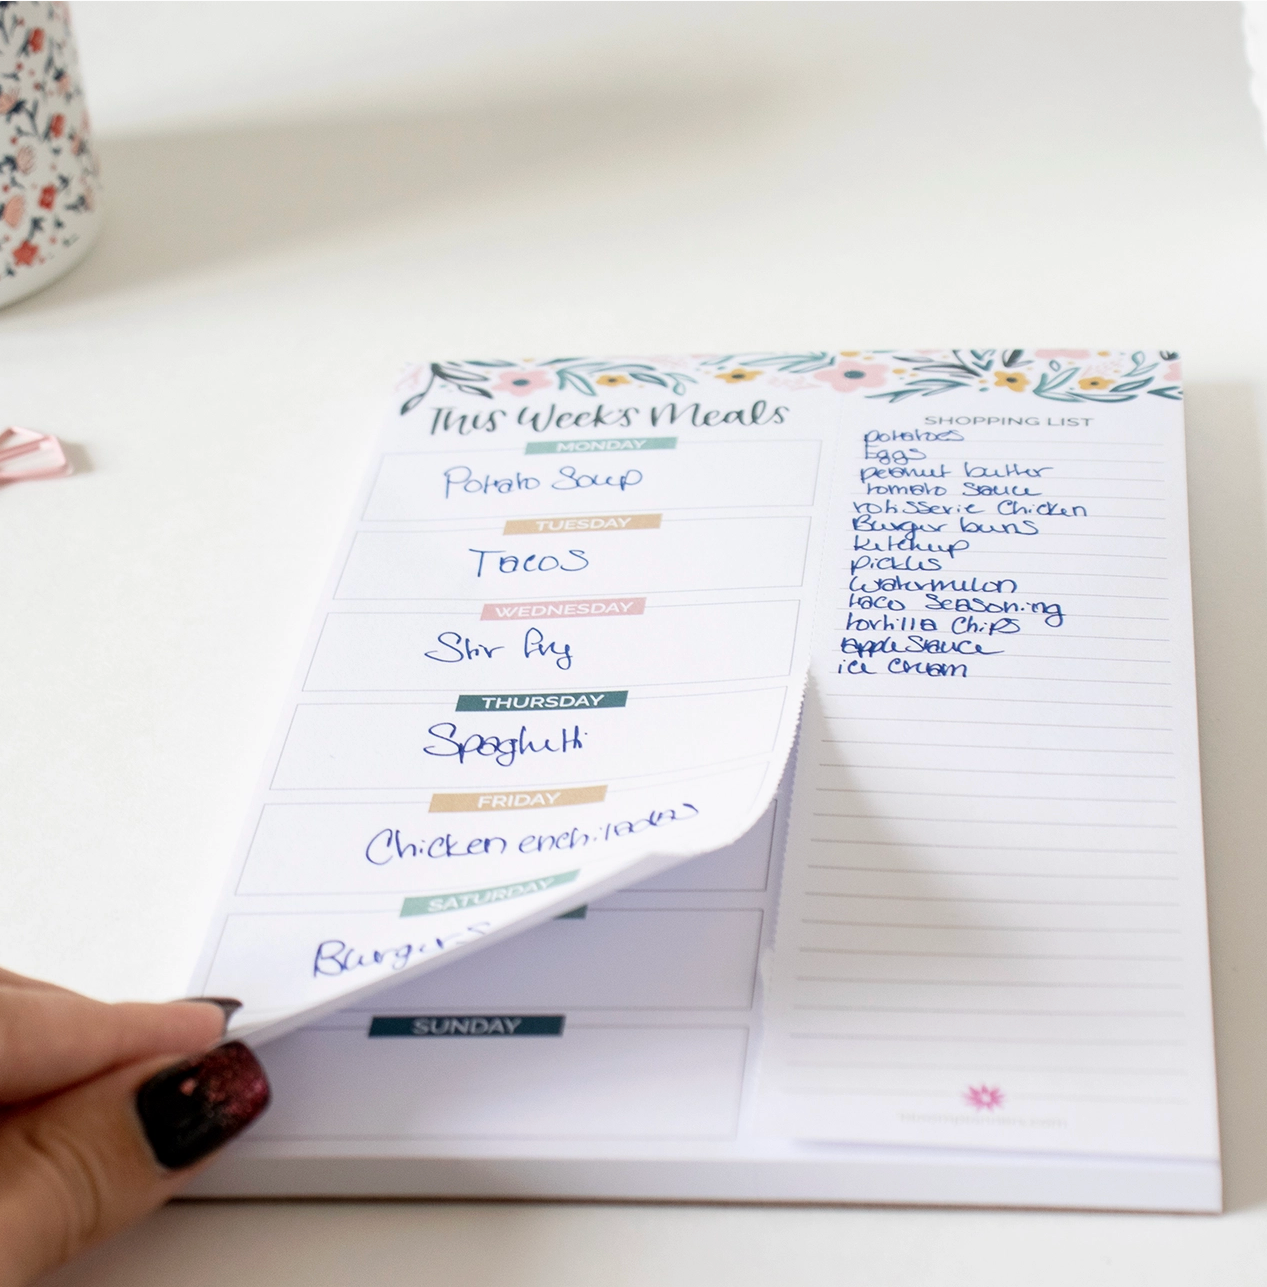 This Week's Meals
MONDAY
Potato Soup
TUESDAY
Tacos
WEDNESDAY
Stir fry
THURSDAY
Spaghetti
FRIDAY
Chicken enchiladas
SATURDAY
Burgers
SUNDAY
SHOPPING LIST
potatoes
Eggs
peanut butter
tomato sauce
rotisserie Chicken
Burger buns
ketchup
pickles
watermelon
taco seasoning
tortilla chips
apple sauce
ice cream